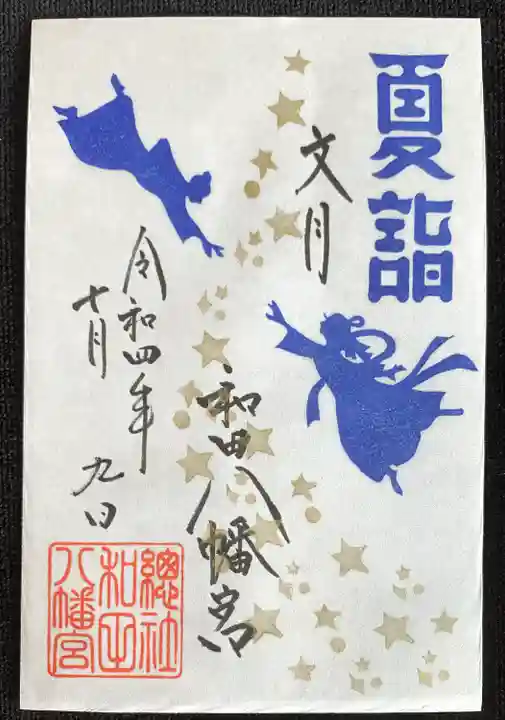 夏詣
文月
和田八幡宮
令和四年
十月
九日
總社
和田
八幡宮